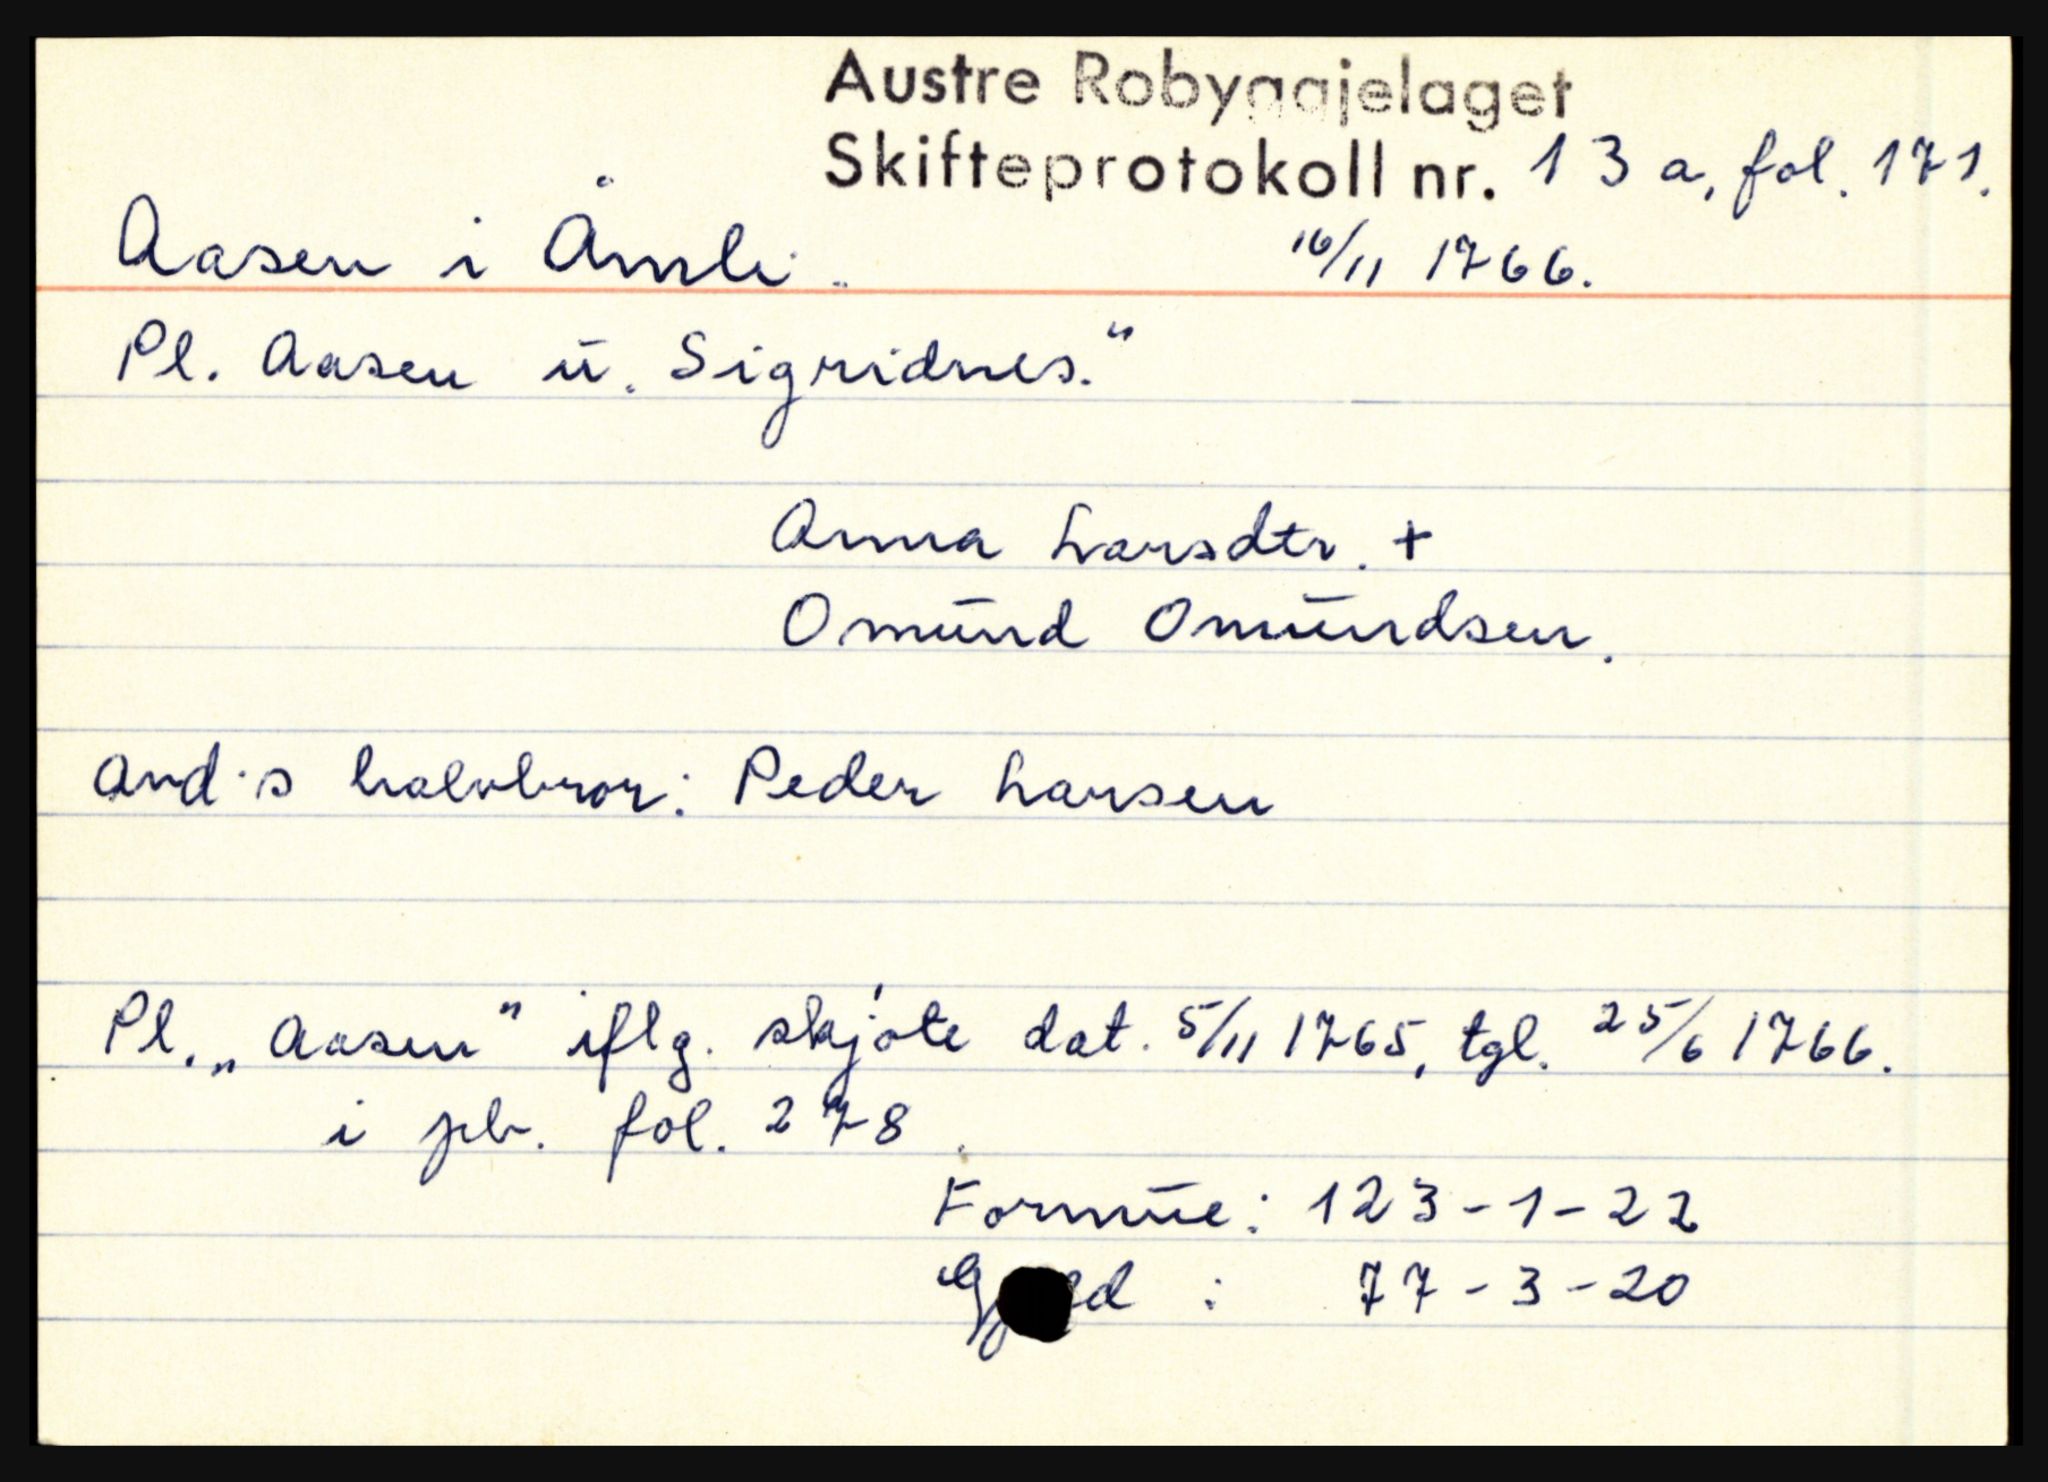 Austre Robyggjelaget
Skifteprotokoll nr. 13 a, fol. 171.
Aasen i Åmli. 16/11 1766.
Pl. Aasen u. Sigridnes."
Anna Larsdtr. +
Omund Omundsen.
Avd's halvbror: Peder Larsen
Pl. „Aasen" iflg. skjøte dat. 5/11 1765, tgl. 25/6 1766.
i pb. fol. 278.
Formue: 123-1-22
: 77-3-20